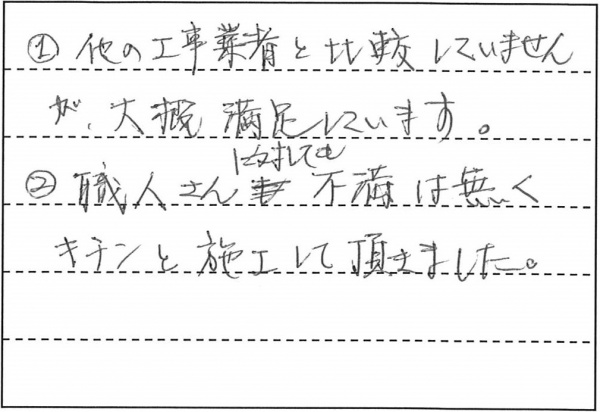 ① 他の工事業者と比較していません
が、大概満足しています。
② 職人さんに対しても不満は無く
キチンと施工して頂きました。